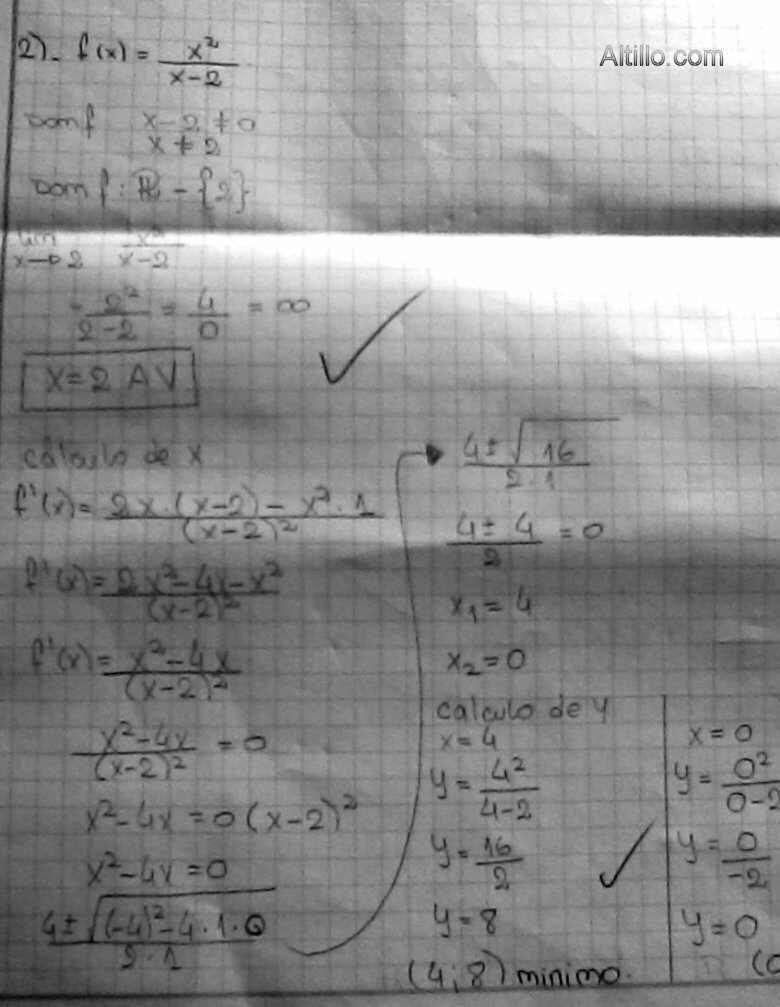 Altillo.com
2)- f(x) = x²/(x-2)
Dom f x-2 ≠ 0
x ≠ 2
Dom f: ℝ - {2}
lim x→2 x²/(x-2)
2²/(2-2) = 4/0 = ∞
x=2 AV
calculo de x
f'(x) = (2x·(x-2) - x²·1)/(x-2)²
f'(x) = (2x²-4x-x²)/(x-2)²
f'(x) = (x²-4x)/(x-2)²
(x²-4x)/(x-2)² = 0
x²-4x = 0(x-2)²
x²-4x = 0
(4±√((-4)²-4·1·0))/(2·1)
(4±√16)/(2·1)
(4±4)/2 = 0
x₁ = 4
x₂ = 0
calculo de y
x = 4
y = 4²/(4-2)
y = 16/2
y = 8
(4;8) minimo.
x = 0
y = 0²/(0-2
y = 0/-2
y = 0
(0